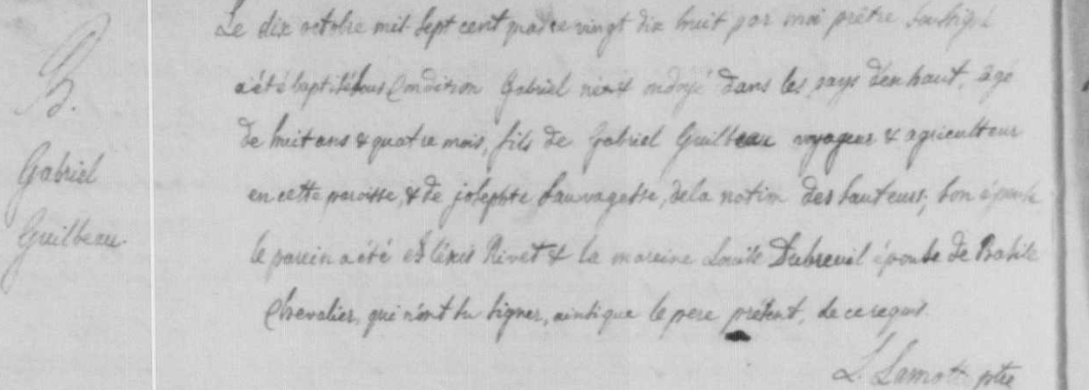 B.
Gabriel
Guilbeau.
Le dix octobre mil sept cent quatre vingt dix huit par moi prêtre soussigné
a été baptisé sous condition Gabriel né & ondoyé dans les pays d'en haut, âgé
de huit ans & quatre mois, fils de Gabriel Guilbeau voyageur & agriculteur
en cette paroisse, & de josephte sauvagesse, de la nation des sauteurs; son épouse
le parein a été Rivet & la mareine Louise Dubreuil épouse de Batiste
Chevalier, qui n'ont su signer, ainsi que le pere présent, de ce requis.
L. Lamott ptre